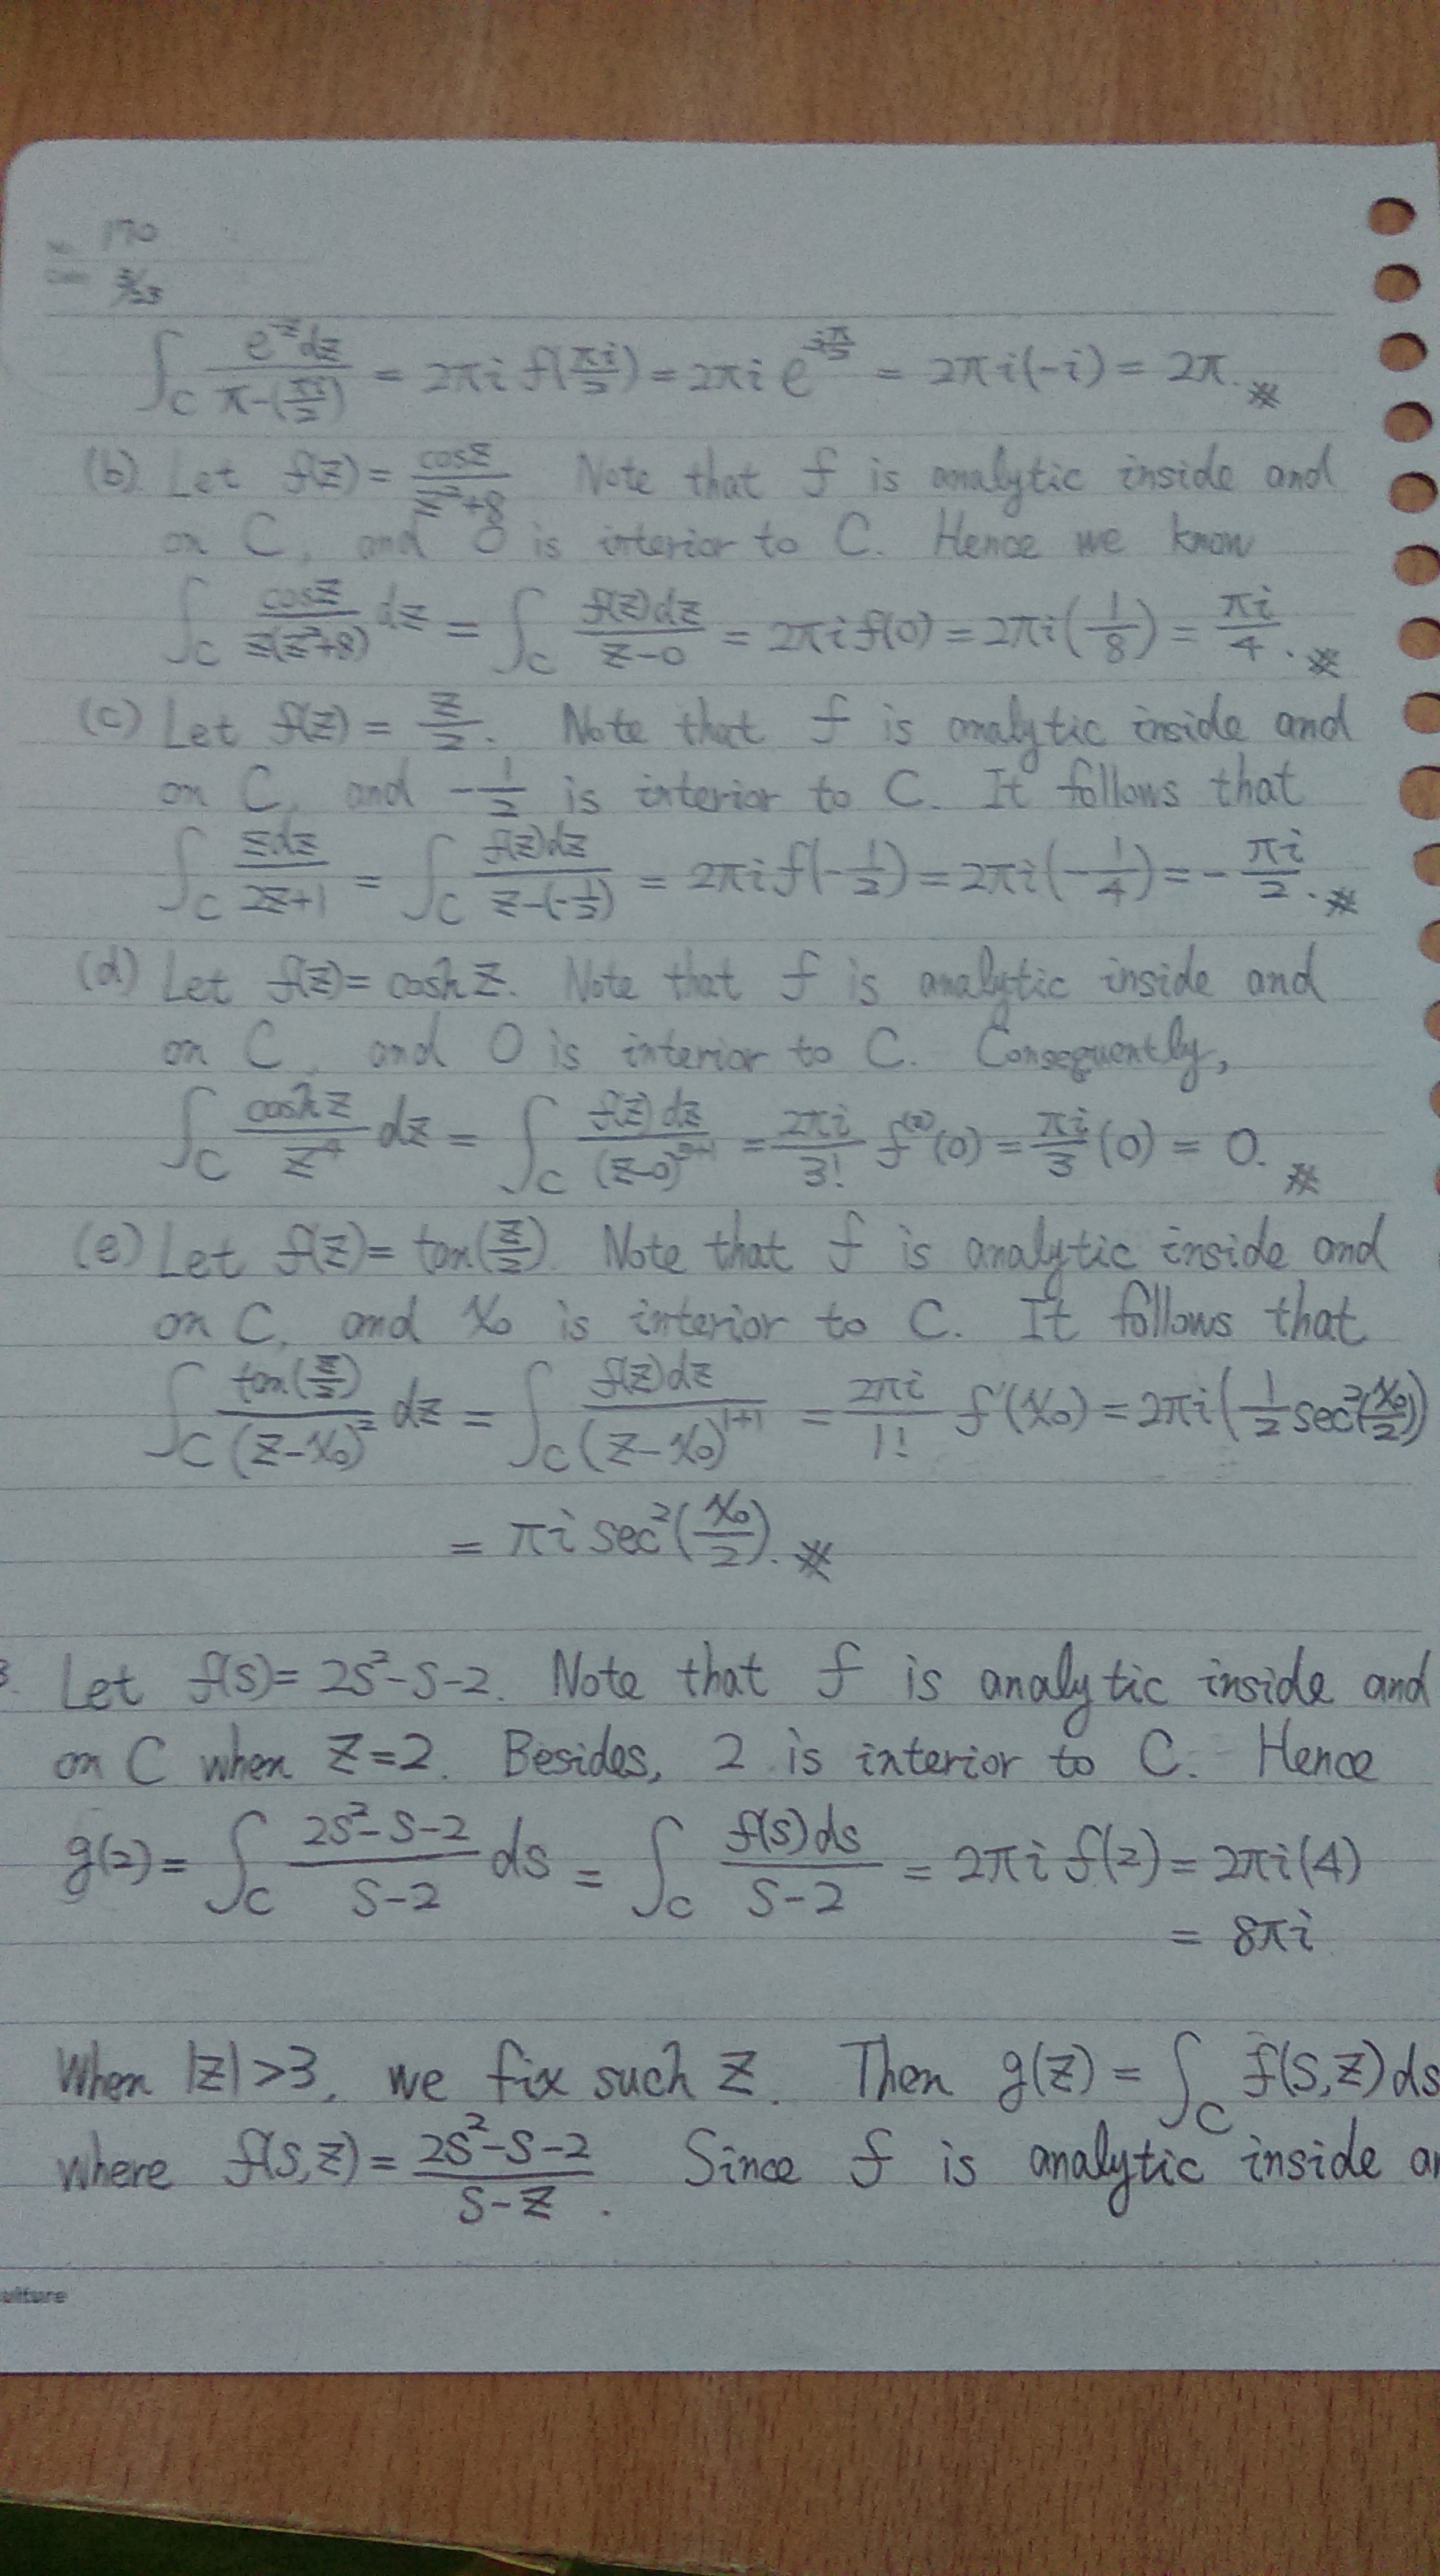 170
3/23
∫_C e^{-z}dz / π-(πi/2) = 2πi f(πi/2) = 2πi e^{-iπ/2} = 2πi(-i) = 2π.※
(b) Let f(z) = cosz / z²+8 Note that f is analytic inside and
on C, and 0 is interior to C. Hence we know
∫_C cosz / z(z²+8) dz = ∫_C f(z)dz / z-0 = 2πi f(0) = 2πi(1/8) = πi/4.※
(c) Let f(z) = z/2. Note that f is analytic inside and
on C, and -1/2 is interior to C. It follows that
∫_C zdz / 2z+1 = ∫_C f(z)dz / z-(-1/2) = 2πi f(-1/2) = 2πi(-1/4) = -πi/2.※
(d) Let f(z) = cosh z. Note that f is analytic inside and
on C, and 0 is interior to C. Consequently,
∫_C cosh z / z⁴ dz = ∫_C f(z)dz / (z-0)^{3+1} = 2πi/3! f^{(3)}(0) = πi/3 (0) = 0.※
(e) Let f(z) = tan(z/2). Note that f is analytic inside and
on C, and x₀ is interior to C. It follows that
∫_C tan(z/2) / (z-x₀)² dz = ∫_C f(z)dz / (z-x₀)^{1+1} = 2πi/1! f'(x₀) = 2πi(1/2 sec²(x₀/2))
= πi sec²(x₀/2).※
3. Let f(s) = 2s²-s-2. Note that f is analytic inside and
on C when z=2. Besides, 2 is interior to C. Hence
g(2) = ∫_C 2s²-s-2 / s-2 ds = ∫_C f(s)ds / s-2 = 2πi f(2) = 2πi(4)
= 8πi
When |z|>3, we fix such z. Then g(z) = ∫_C f(s,z)ds
where f(s,z) = 2s²-s-2 / s-z. Since f is analytic inside